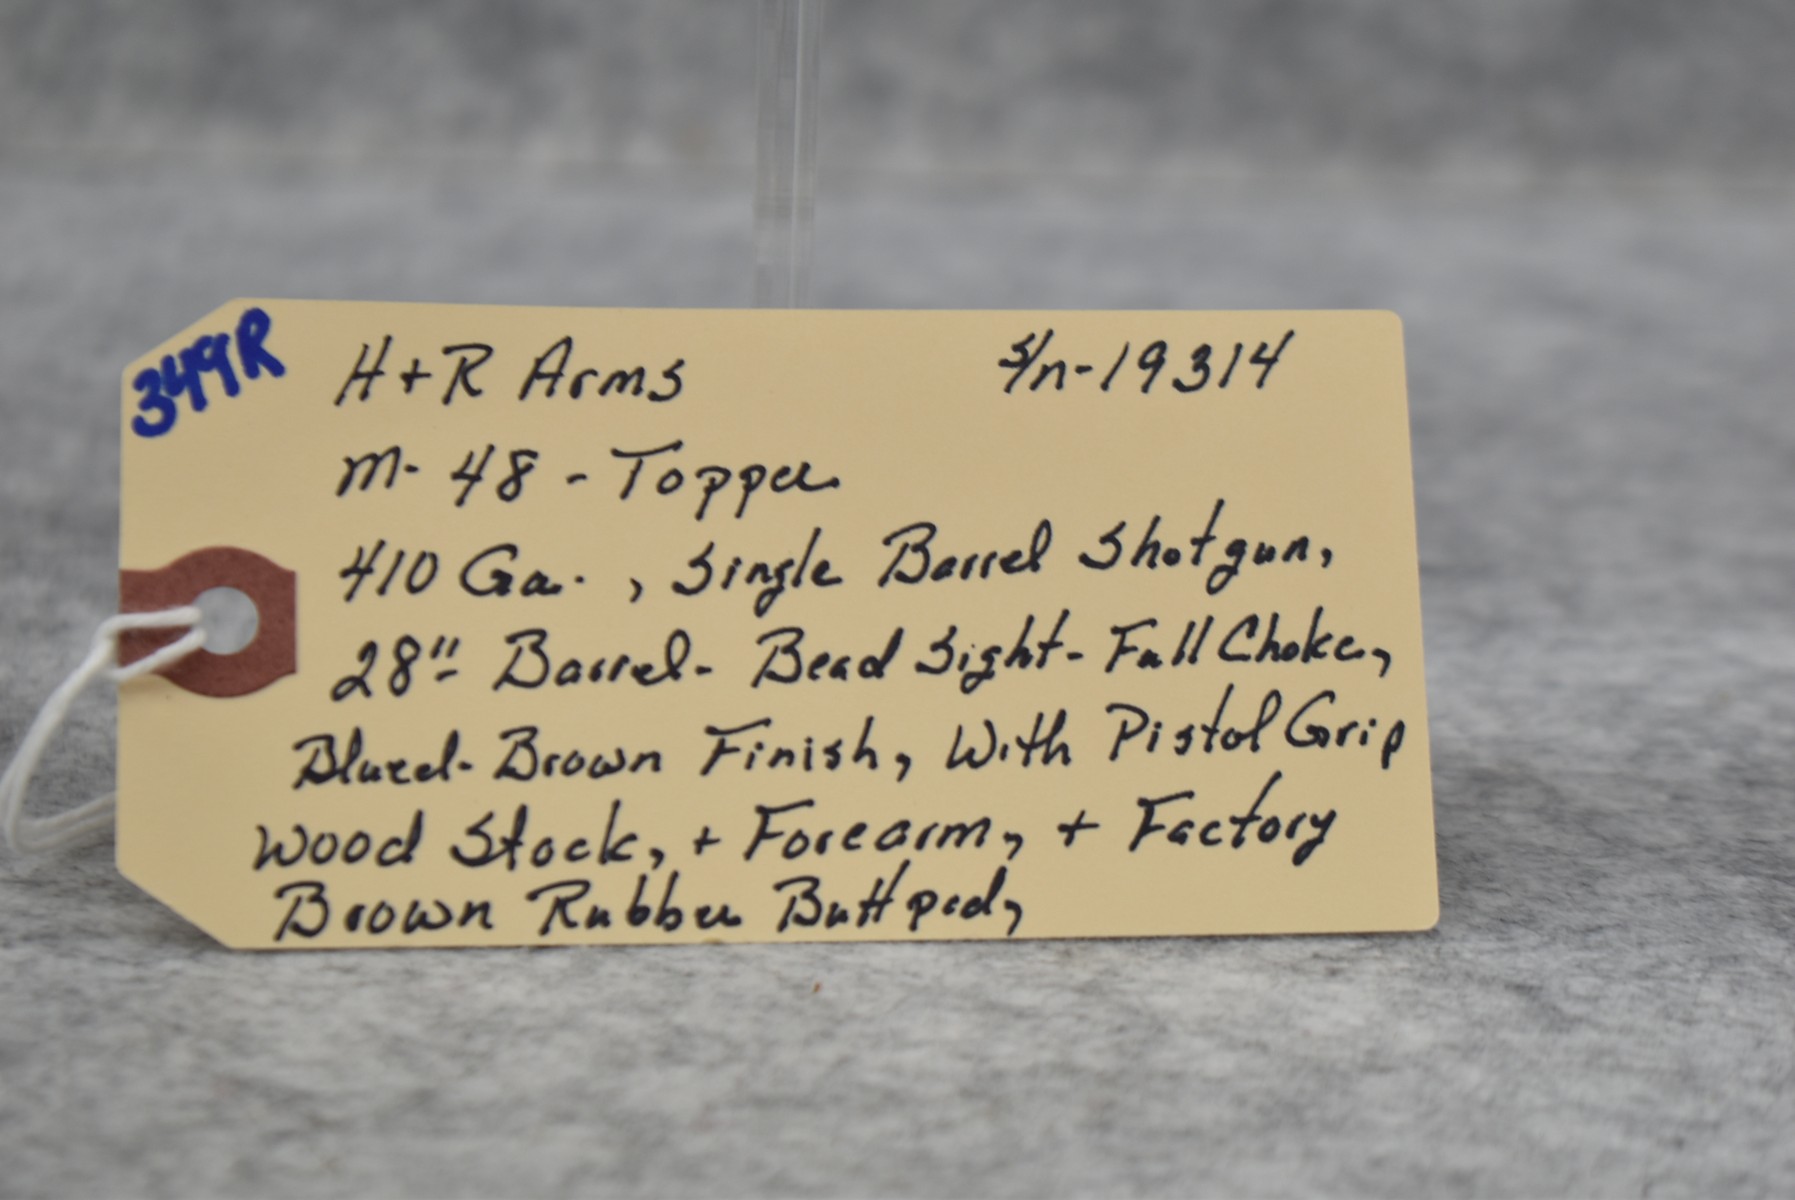 349R
H+R Arms S/n-19314
M-48-Topper
410 Ga., Single Barrel Shotgun,
28" Barrel-Bead Sight-Full Choke,
Blued-Brown Finish, With Pistol Grip
Wood Stock, + Forearm, + Factory
Brown Rubber Buttpad,